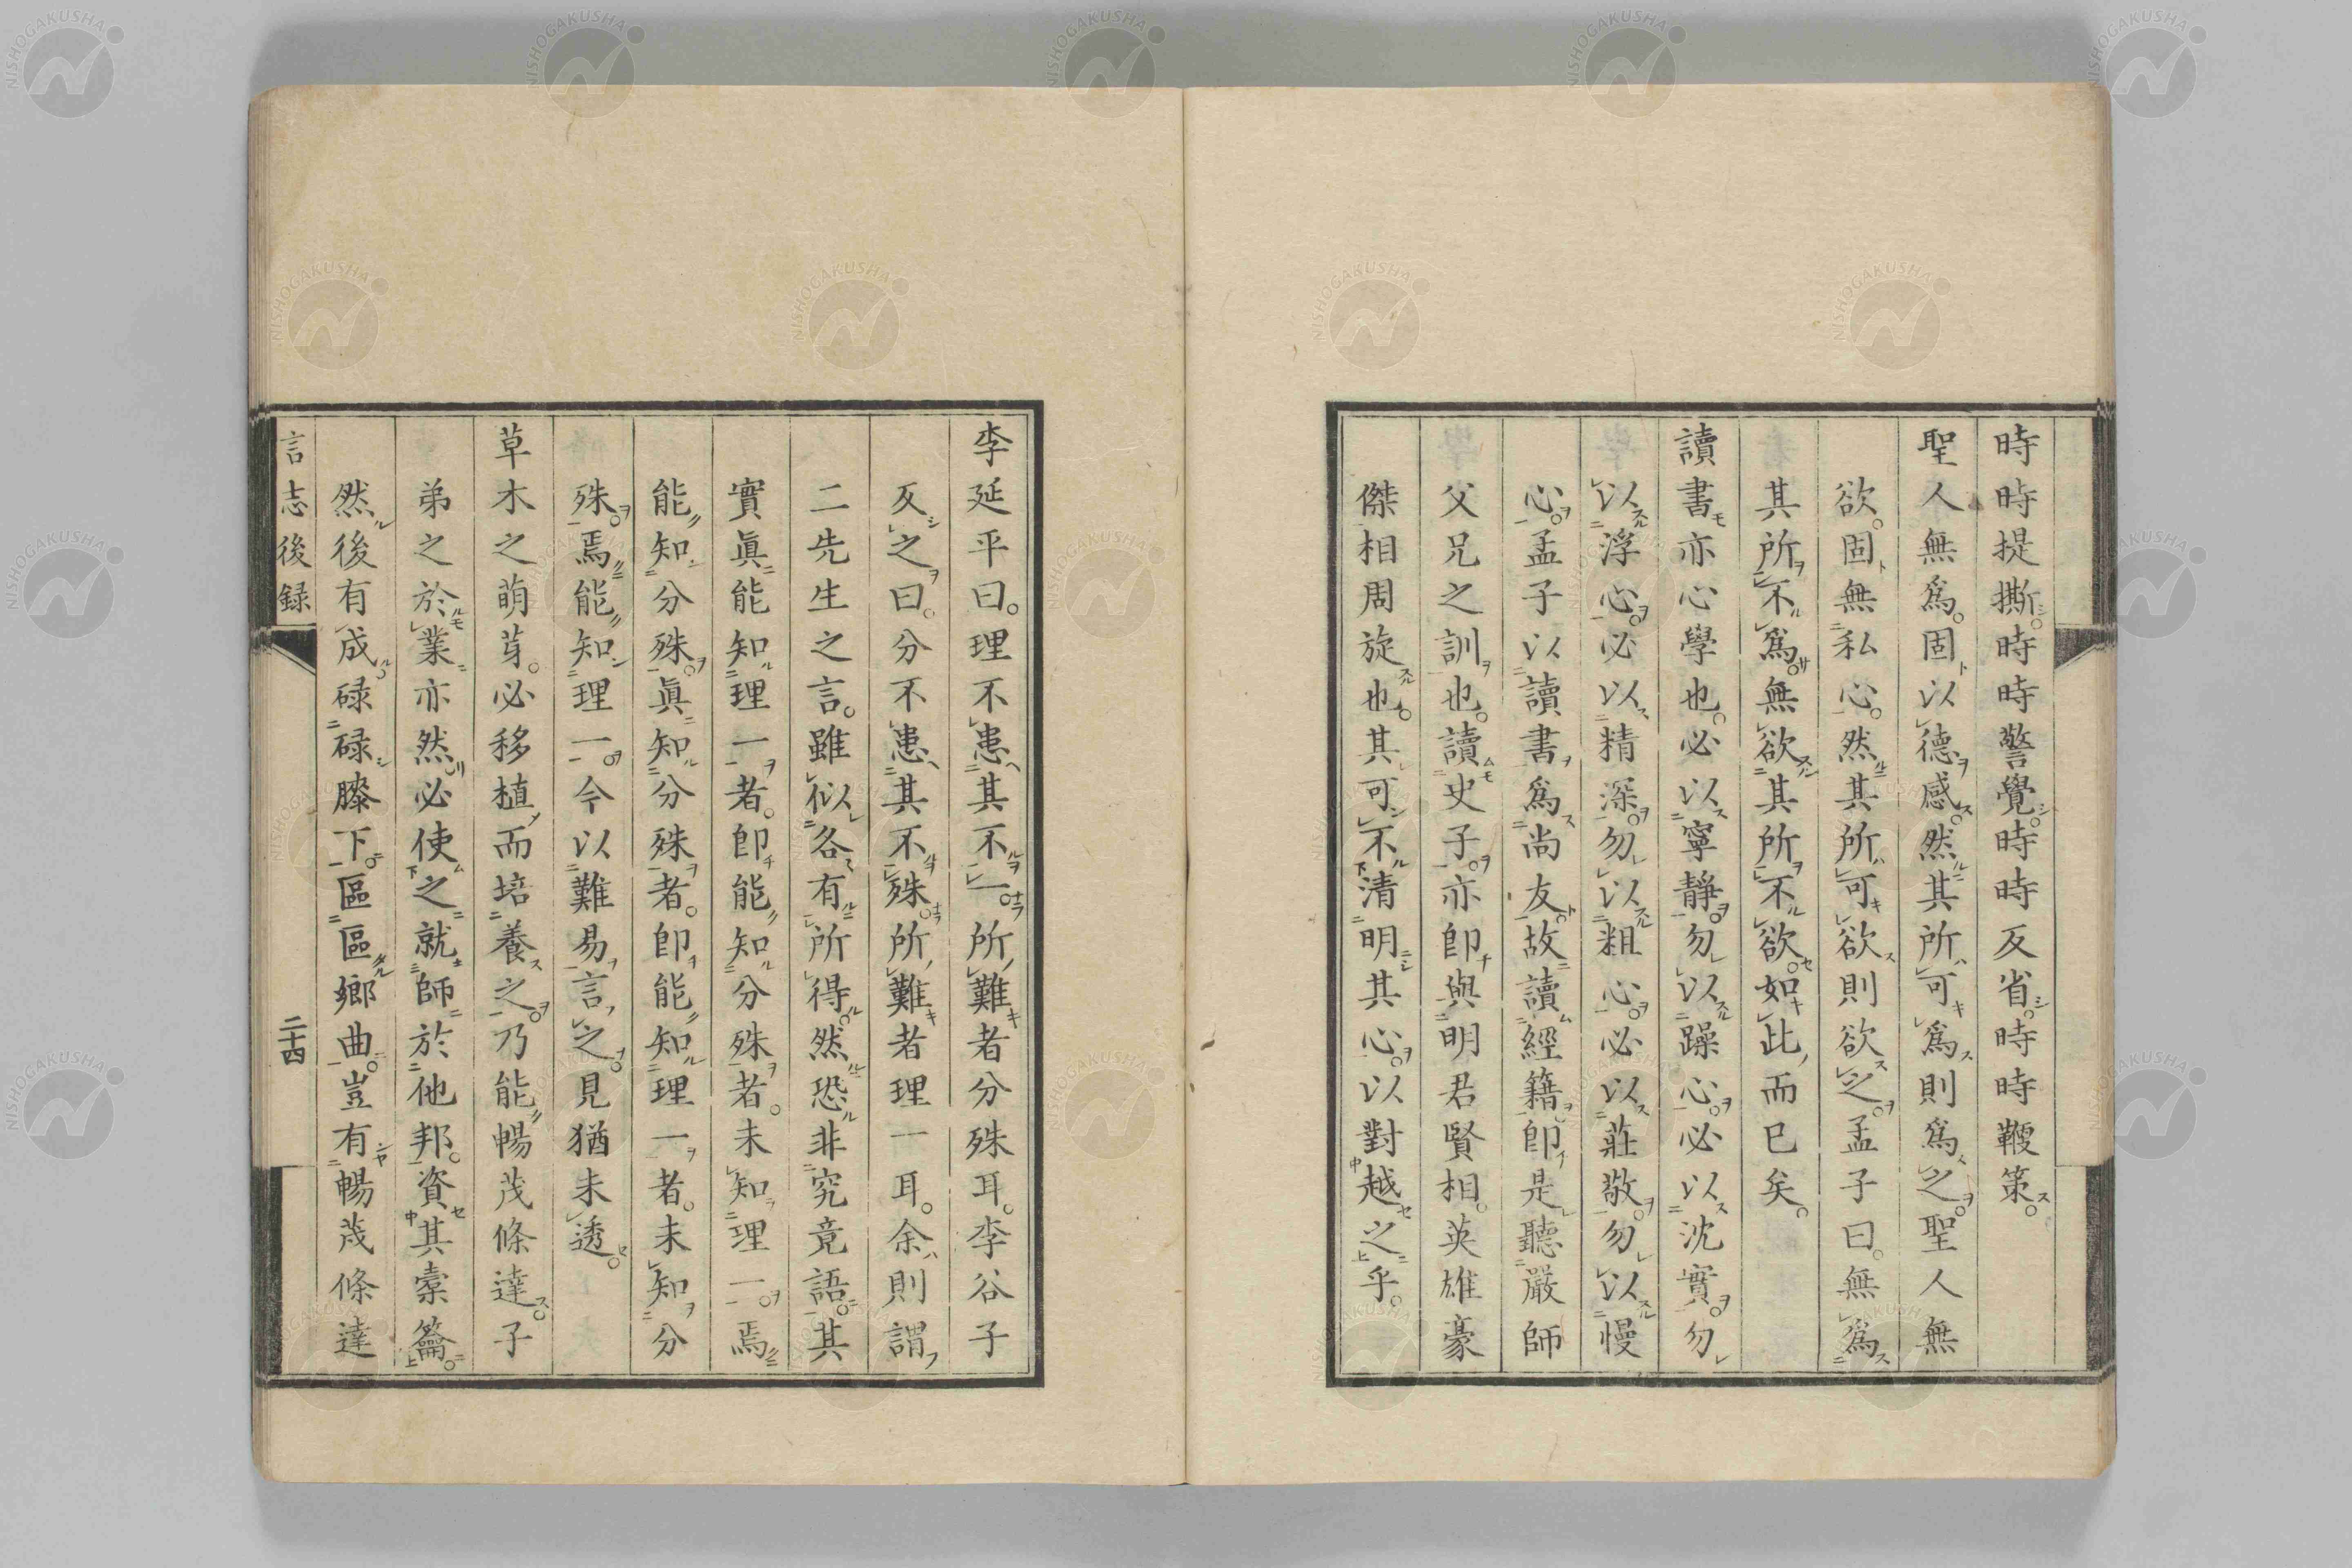 時時提撕。時時警覺。時時反省。時時鞭策。
聖人無爲。固以德感。然其所可爲則爲之。聖人無
欲。固無私心。然其所可欲則欲之。孟子曰。無爲
其所不爲。無欲其所不欲。如此而已矣。
讀書亦心學也。必以寧靜。勿以躁心。必以沈實。勿
以浮心。必以精深。勿以粗心。必以莊敬。勿以慢
心。孟子以讀書爲尚友。故讀經籍。卽是聽嚴師
父兄之訓也。讀史子。亦卽與明君賢相。英雄豪
傑相周旋也。其可不清明其心。以對越之乎。
李延平曰。理不患其不一。所難者分殊耳。李谷子
反之曰。分不患其不殊。所難者理一耳。余則謂
二先生之言。雖似各有所得。然恐非究竟語。其
實眞能知理一者。卽能知分殊者。未知理一。焉
能知分殊。眞知分殊者。卽能知理一者。未知分
殊。焉能知理一。今以難易言之。見猶未透。
草木之萌芽。必移植而培養之。乃能暢茂條達。子
弟之於業亦然。必使之就師於他邦。資其橐籥。
然後有成。碌碌膝下。區區鄉曲。豈有暢茂條達
言志後録
二十四
NISHOGAKUSHA